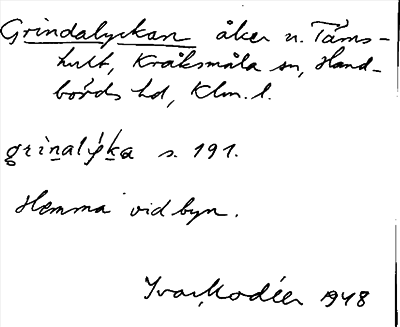 Grindalyckan åker n. Täms-
hult, Kråksmåla sn, Hand-
börds hd, Klm. l.
grìnalýka s. 191.
Hemma vid byn.
Ivar Modéer 1948